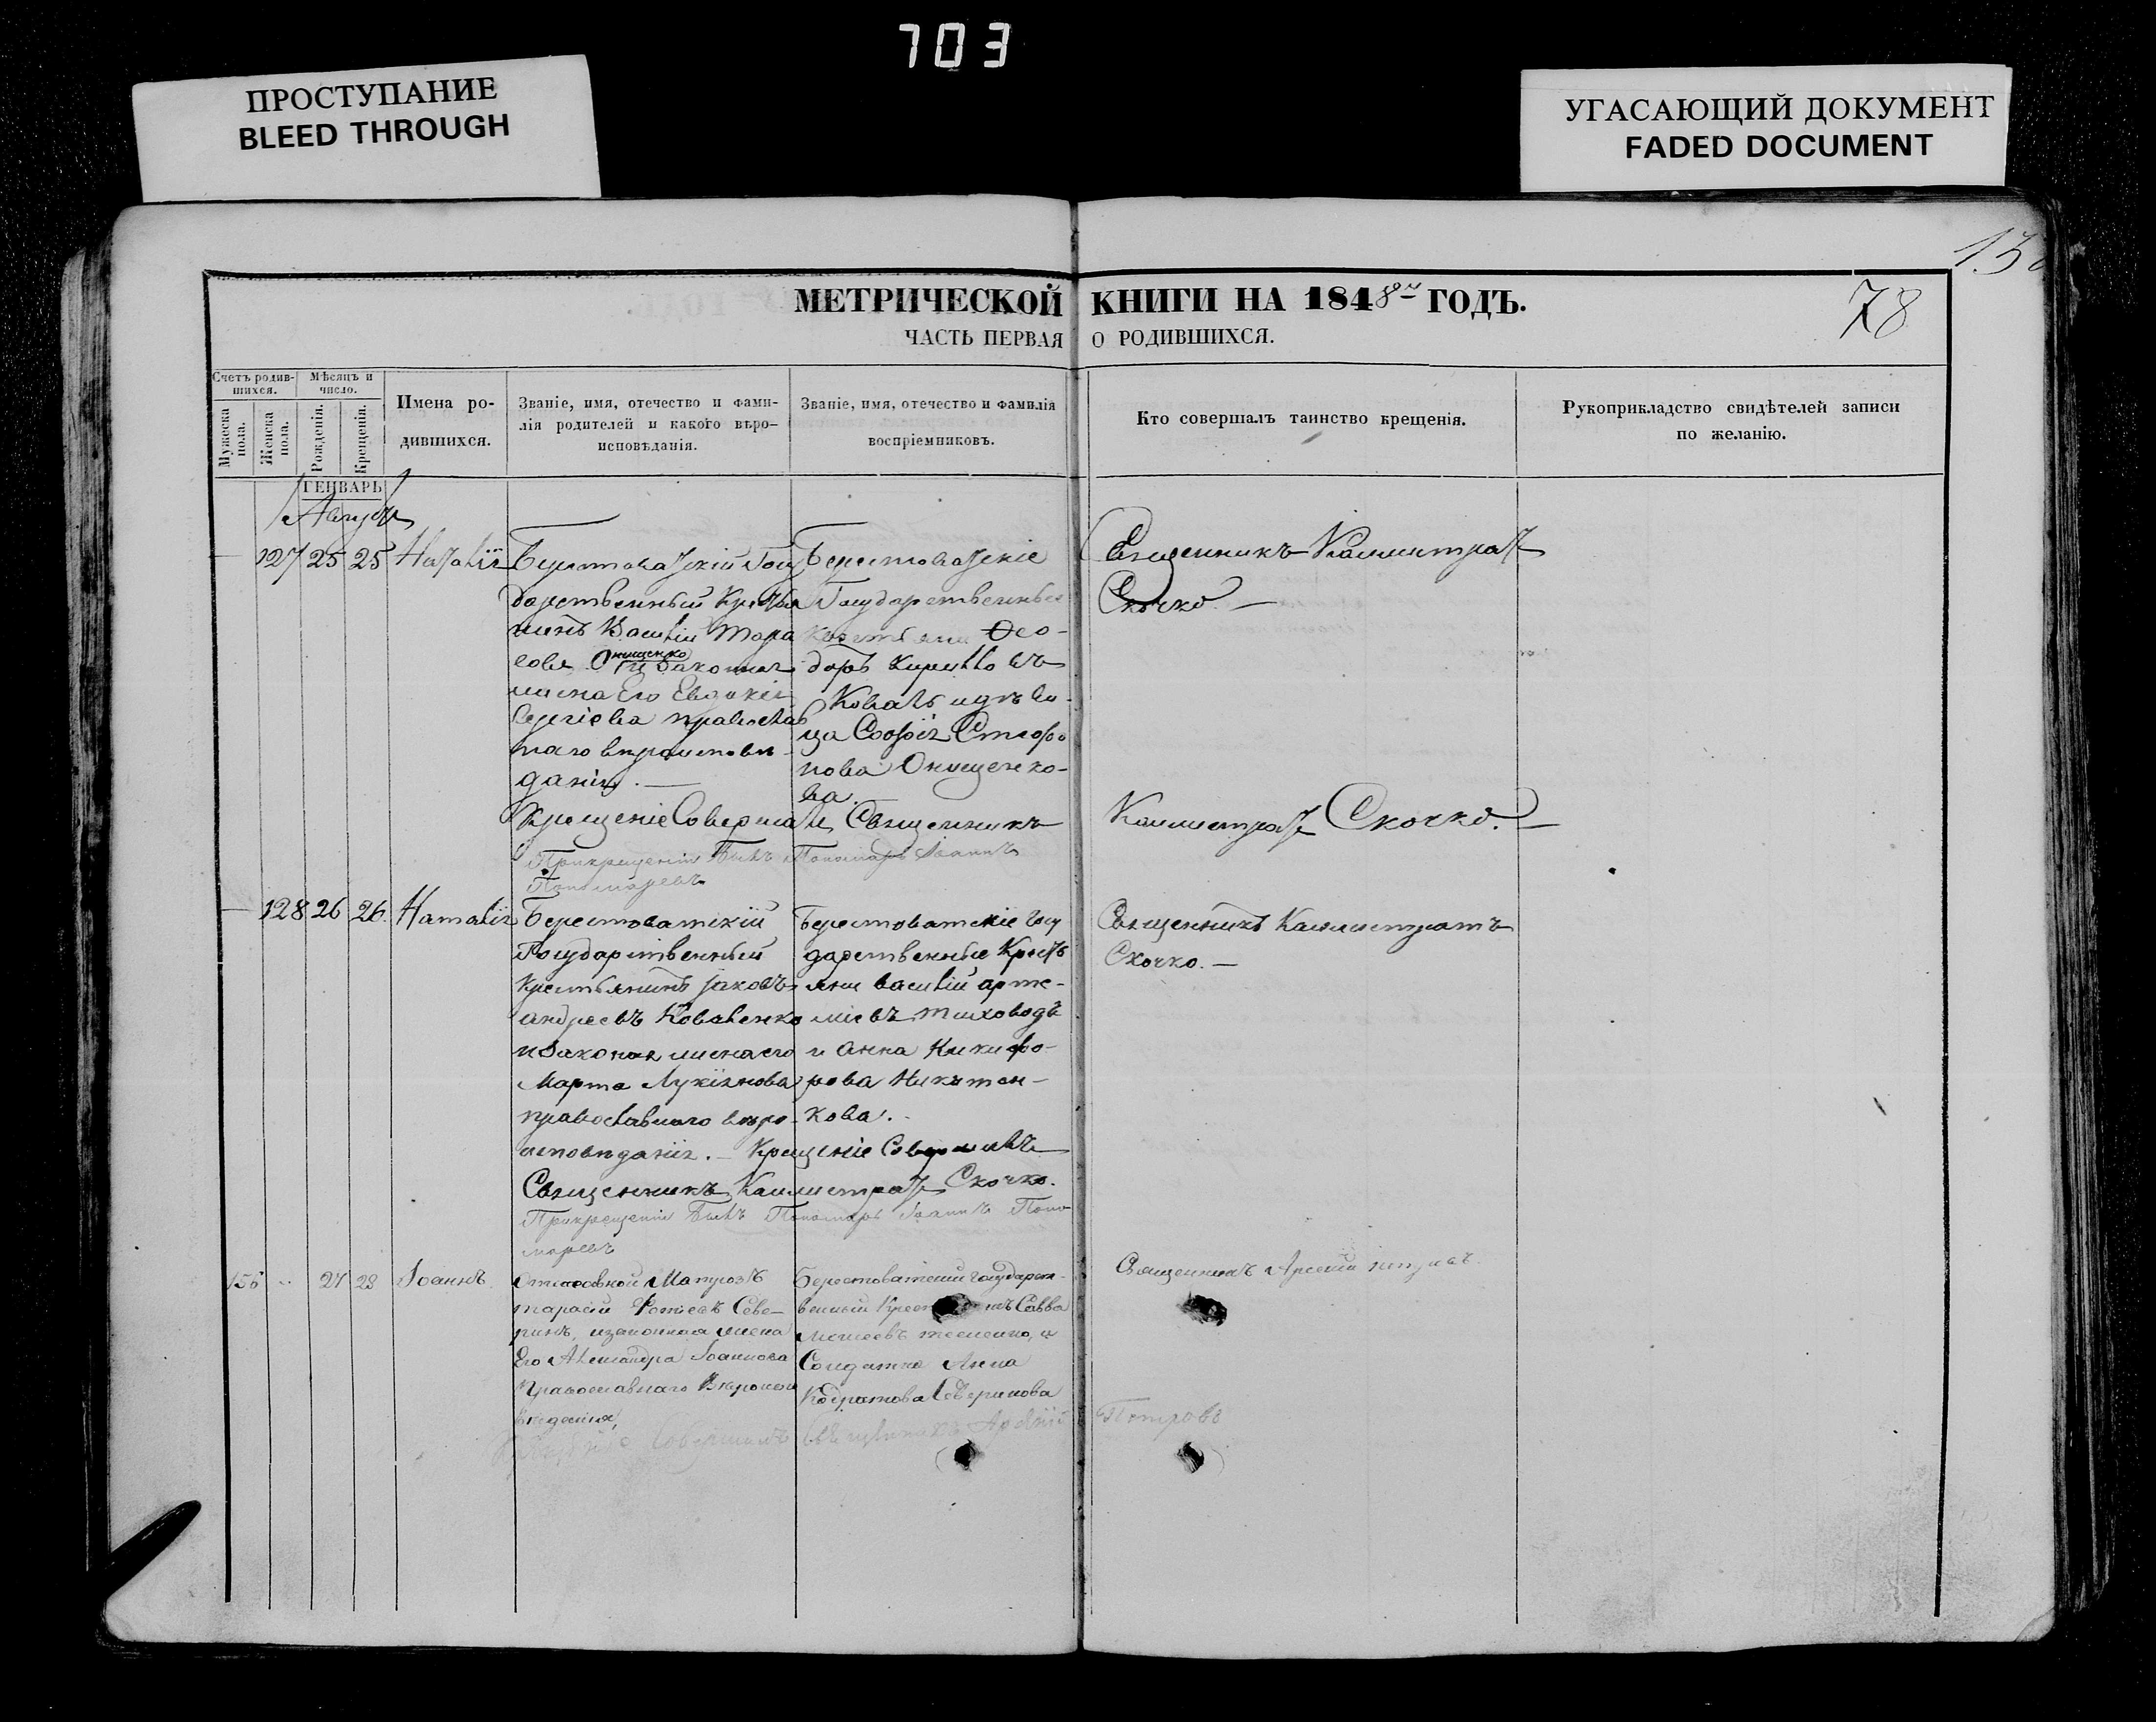 703
ПРОСТУПАНИЕ
BLEED THROUGH
УГАСАЮЩИЙ ДОКУМЕНТ
FADED DOCUMENT
МЕТРИЧЕСКОЙ КНИГИ НА 1848й ГОДЪ.
78
ЧАСТЬ ПЕРВАЯ О РОДИВШИХСЯ.
Счетъ родив-
шихся.
Мужеска пола.
Женска пола.
Мѣсяцъ и
число.
Рожденія.
Крещенія.
Имена ро-
дившихся.
Званіе, имя, отечество и фами-
лія родителей и какого вѣро-
исповѣданія.
Званіе, имя, отечество и фамилія
воспріемниковъ.
Кто совершалъ таинство крещенія.
Рукоприкладство свидѣтелей записи
по желанію.
ГЕНВАРЬ
Августъ
127 25 25 Наталія
Берестоватскій Госу
дарственный Кресть
нинъ Василій Тара
совъ Онищенко
жена Его Евдокія
Сергіева православ
наго вѣроисповѣ-
данія. —
Берестоватскіе
Государственные
Крестьяне Ѳео-
доръ Кирилловъ
Коваль и дѣви-
ца Софія Стефа
нова Онищенко-
ва.
Священникъ Каллистратъ
Скочко. —
Крещеніе Совершалъ Священникъ Каллистратъ Скочко. —
При крещеніи Былъ Пономарь Іоаннъ
Пономаревъ
128 26 26 Наталія
Берестоватскій
Государственный
Крестьянинъ Іаковъ
Андреевъ Коваленко
и законая жена его
Марта Лукіянова
православнаго вѣро-
исповѣданія. —
Берестоватскіе Госу
дарственные Кресть
яне Василій Арте-
міевъ Тиховодъ
и Анна Никифо-
рова Никитен-
кова.
Священникъ Каллистратъ
Скочко. —
Крещеніе Совершалъ
Священникъ Каллистратъ Скочко.
При крещеніи Былъ Пономарь Іоаннъ Поно
маревъ
156 27 28 Іоаннъ
Отставной Матрозъ
Тарасій Севе-
ринъ, и законная жена
Его Александра Іоаннова
Православнаго Вѣроиспо
вѣданія,
Берестоватскій государст-
венный Савва
Моисеевъ и
Солдатка Анна
Кодратова Северинова
Священникъ Арсеній Петровъ
Совершалъ Священникъ Арсеній Петровъ